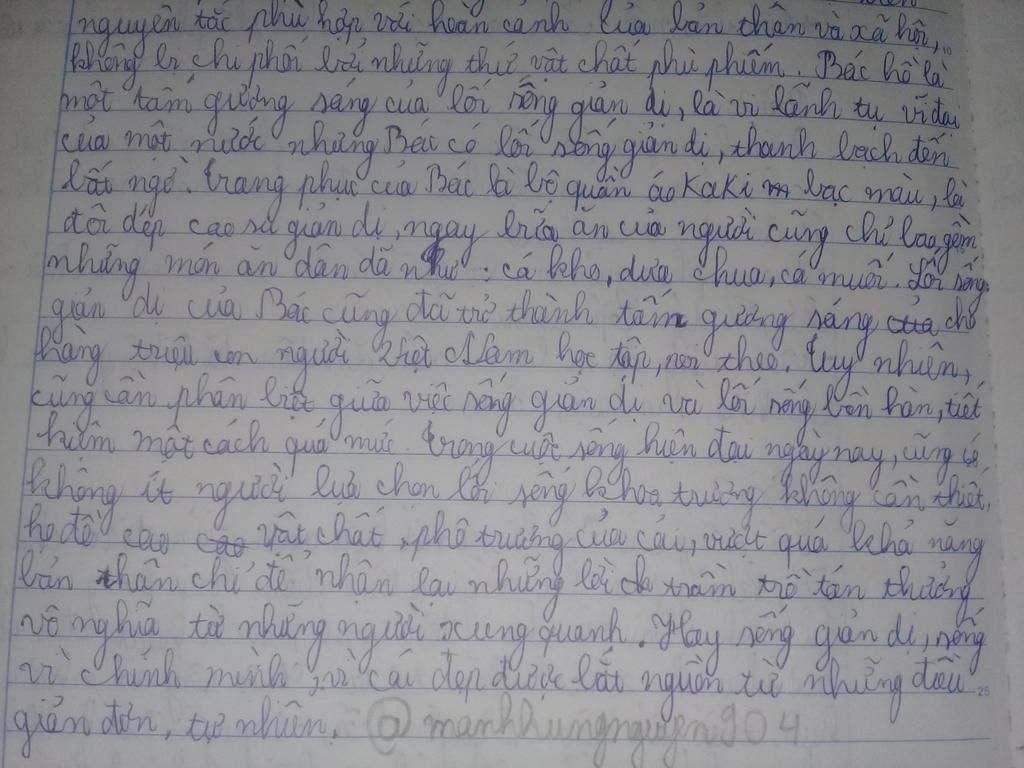 nguyên tắc phù hợp với hoàn cảnh của bản thân và xã hội,
không bị chi phối bởi những thứ vật chất phù phiếm. Bác hồ là
một tấm gương sáng của lối sống giản dị, là vì lãnh tụ vĩ đại
của một nước nhưng Bác có lối sống giản dị, thanh bạch đến
bất ngờ. Trang phục của Bác là bộ quần áo KaKi bạc màu, là
đôi dép cao su giản dị, ngay bữa ăn của người cũng chỉ bao gồm
những món ăn dân dã như : cá kho, dưa chua, cá muối. Lối sống
giản dị của Bác cũng đã trở thành tấm gương sáng cho
hàng triệu con người Việt Nam học tập, noi theo. Tuy nhiên,
cũng cần phân biệt giữa việc sống giản dị và lối sống bần hàn, tiết
kiệm một cách quá mức. Trong cuộc sống hiện đại ngày nay, cũng có
không ít người lựa chọn lối sống khoa trương không cần thiết,
họ đề cao vật chất, phô trương của cải, vượt quá khả năng
bản thân chỉ để nhận lại những lời trầm trồ tán thưởng
vô nghĩa từ những người xung quanh. Hãy sống giản dị, sống
vì chính mình, vì cái đẹp được bắt nguồn từ những điều
25
giản đơn, tự nhiên. @manhhungnguyen904